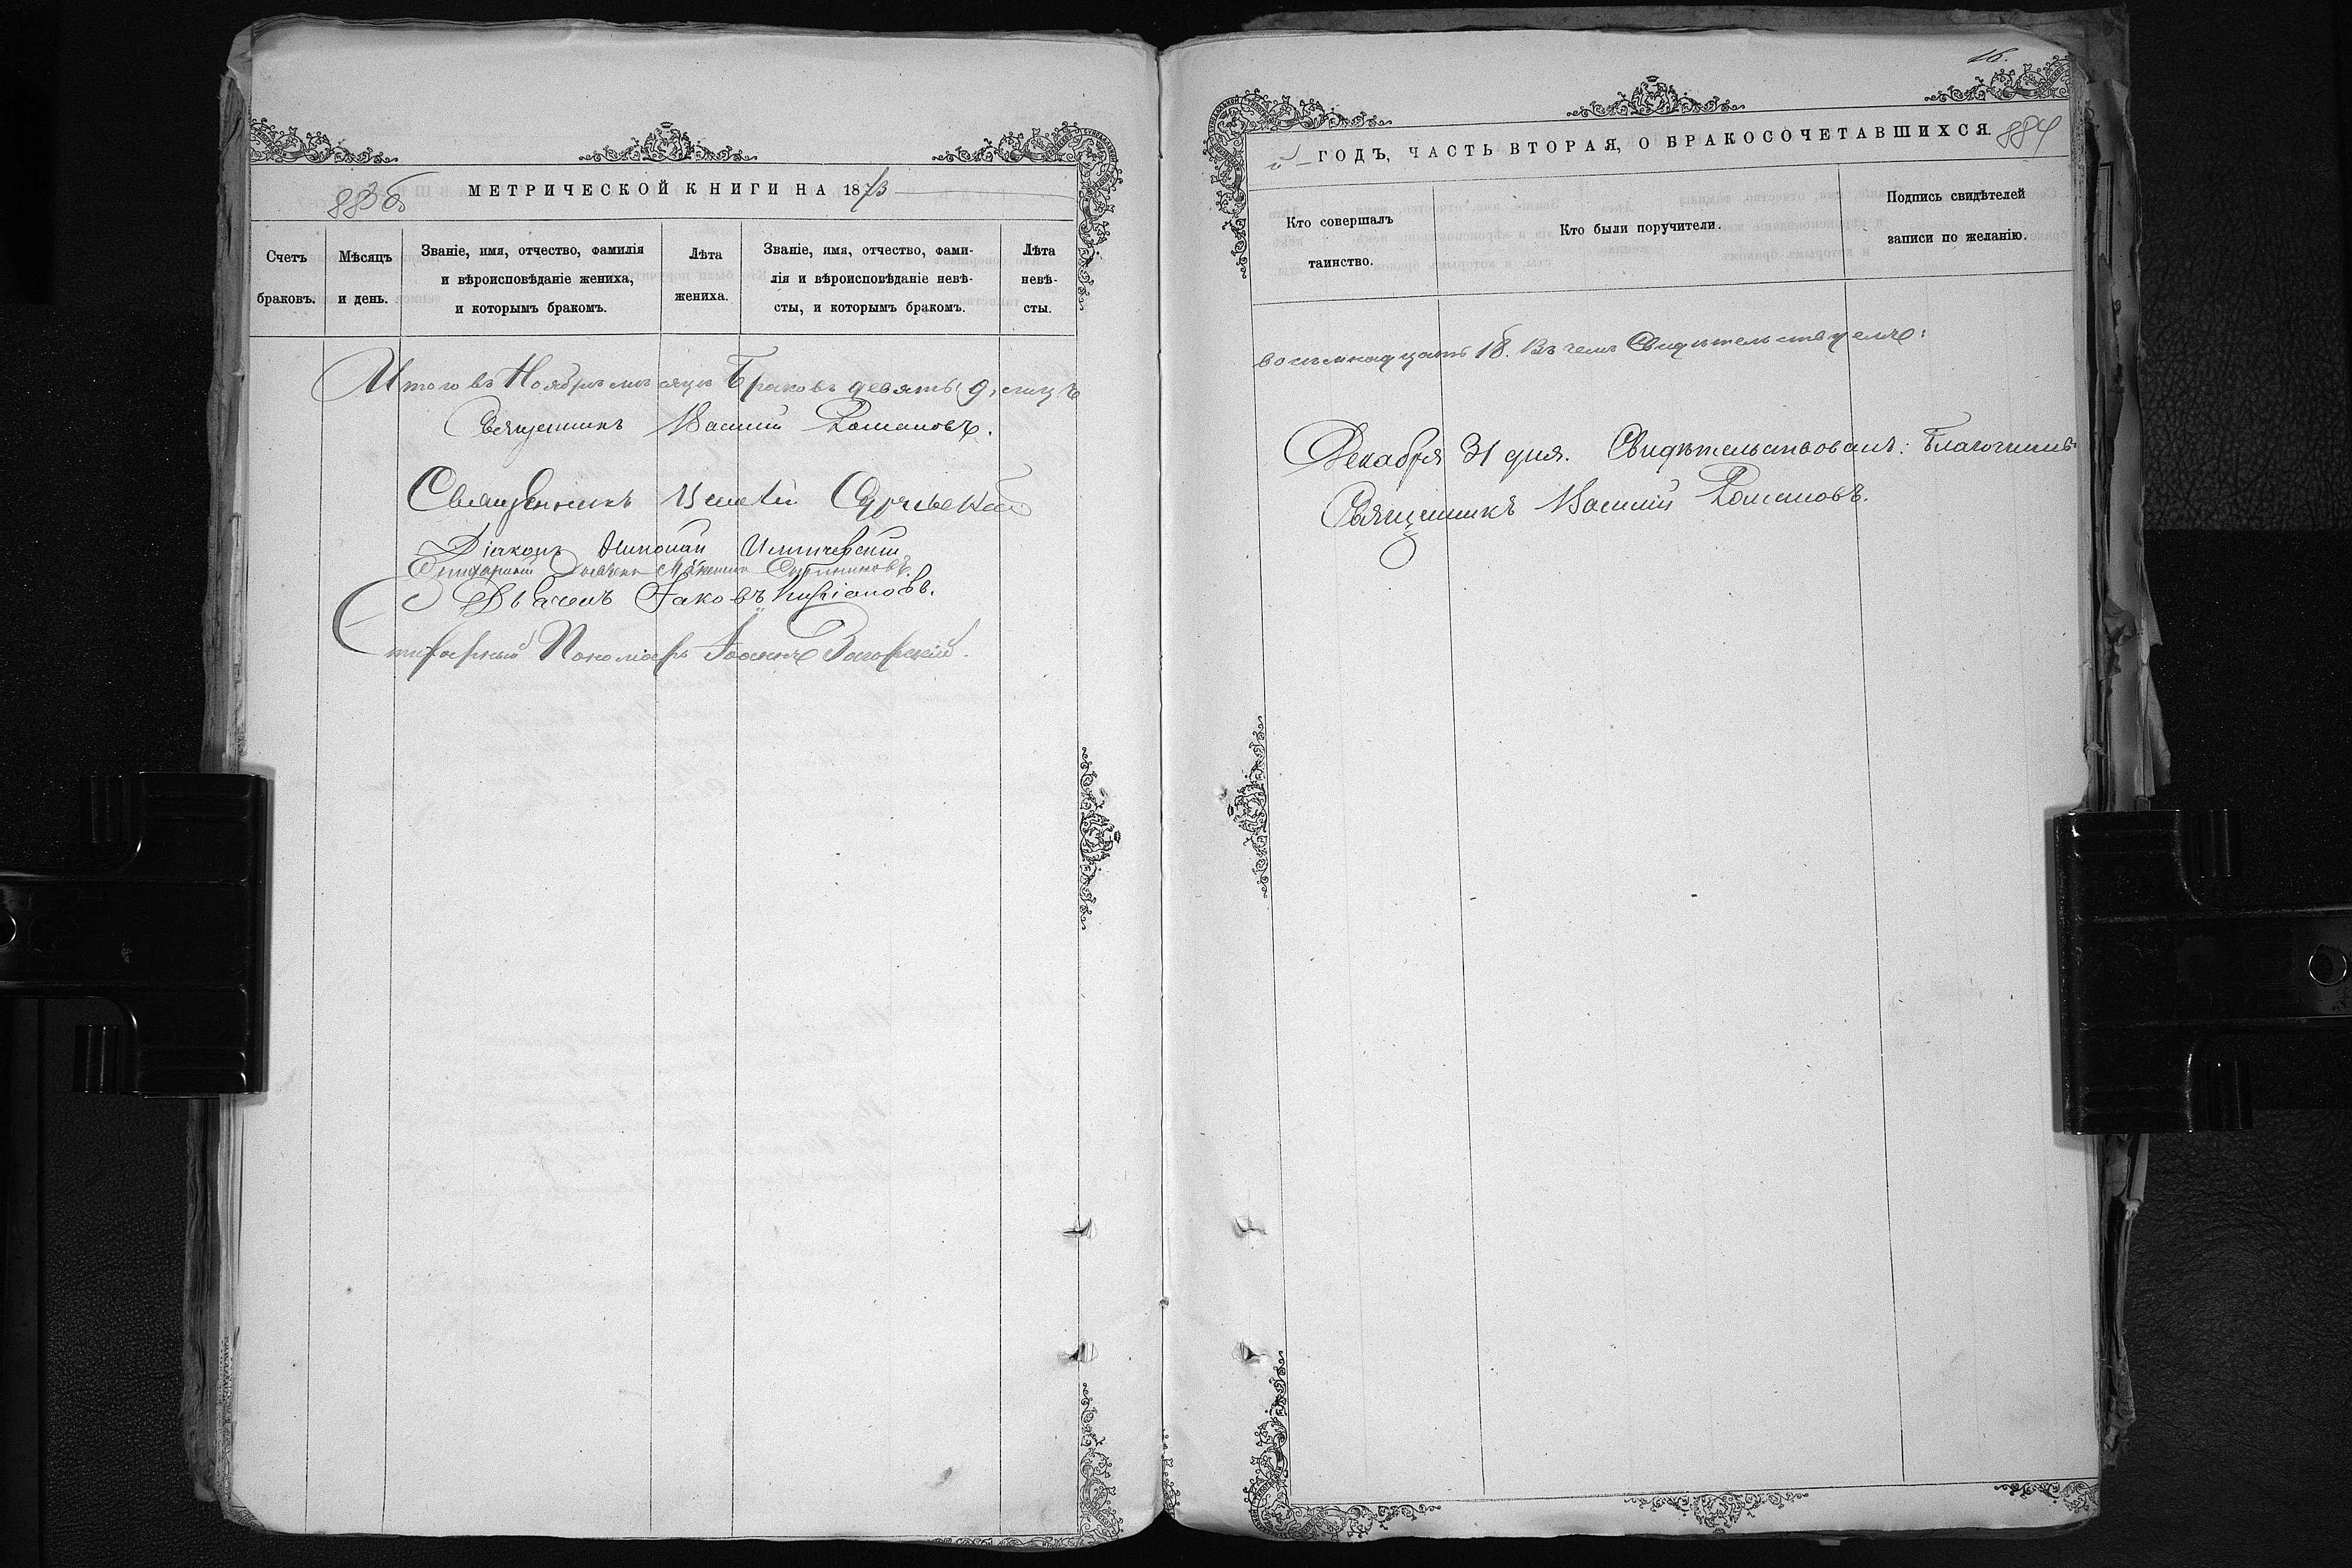 883 об
МЕТРИЧЕСКОЙ КНИГИ НА 1873
Счетъ браковъ.
Мѣсяцъ и день.
Званіе, имя, отчество, фамилія
и вѣроисповѣданіе жениха,
и которымъ бракомъ.
Лѣта
жениха.
Званіе, имя, отчество, фами-
лія и вѣроисповѣданіе невѣ-
сты, и которымъ бракомъ.
Лѣта
невѣ-
сты.
Итого въ Ноябрѣ мѣсяцѣ Браковъ девять 9, лицъ
Священникъ Василій Романовъ.
Священникъ
Діаконъ Николай
Дьячекъ Іаковъ Кипріановъ.
Пономарь Іоаннъ Загорскій.
16.
й ГОДЪ, ЧАСТЬ ВТОРАЯ, О БРАКОСОЧЕТАВШИХСЯ.
884
Кто совершалъ
таинство.
Кто были поручители.
Подпись свидѣтелей
записи по желанію.
восемнадцать 18. Въ чемъ Свидѣтельствуемъ:
Декабря 31 дня. Свидѣтельствовалъ: Благочинный
Священникъ Василій Романовъ.